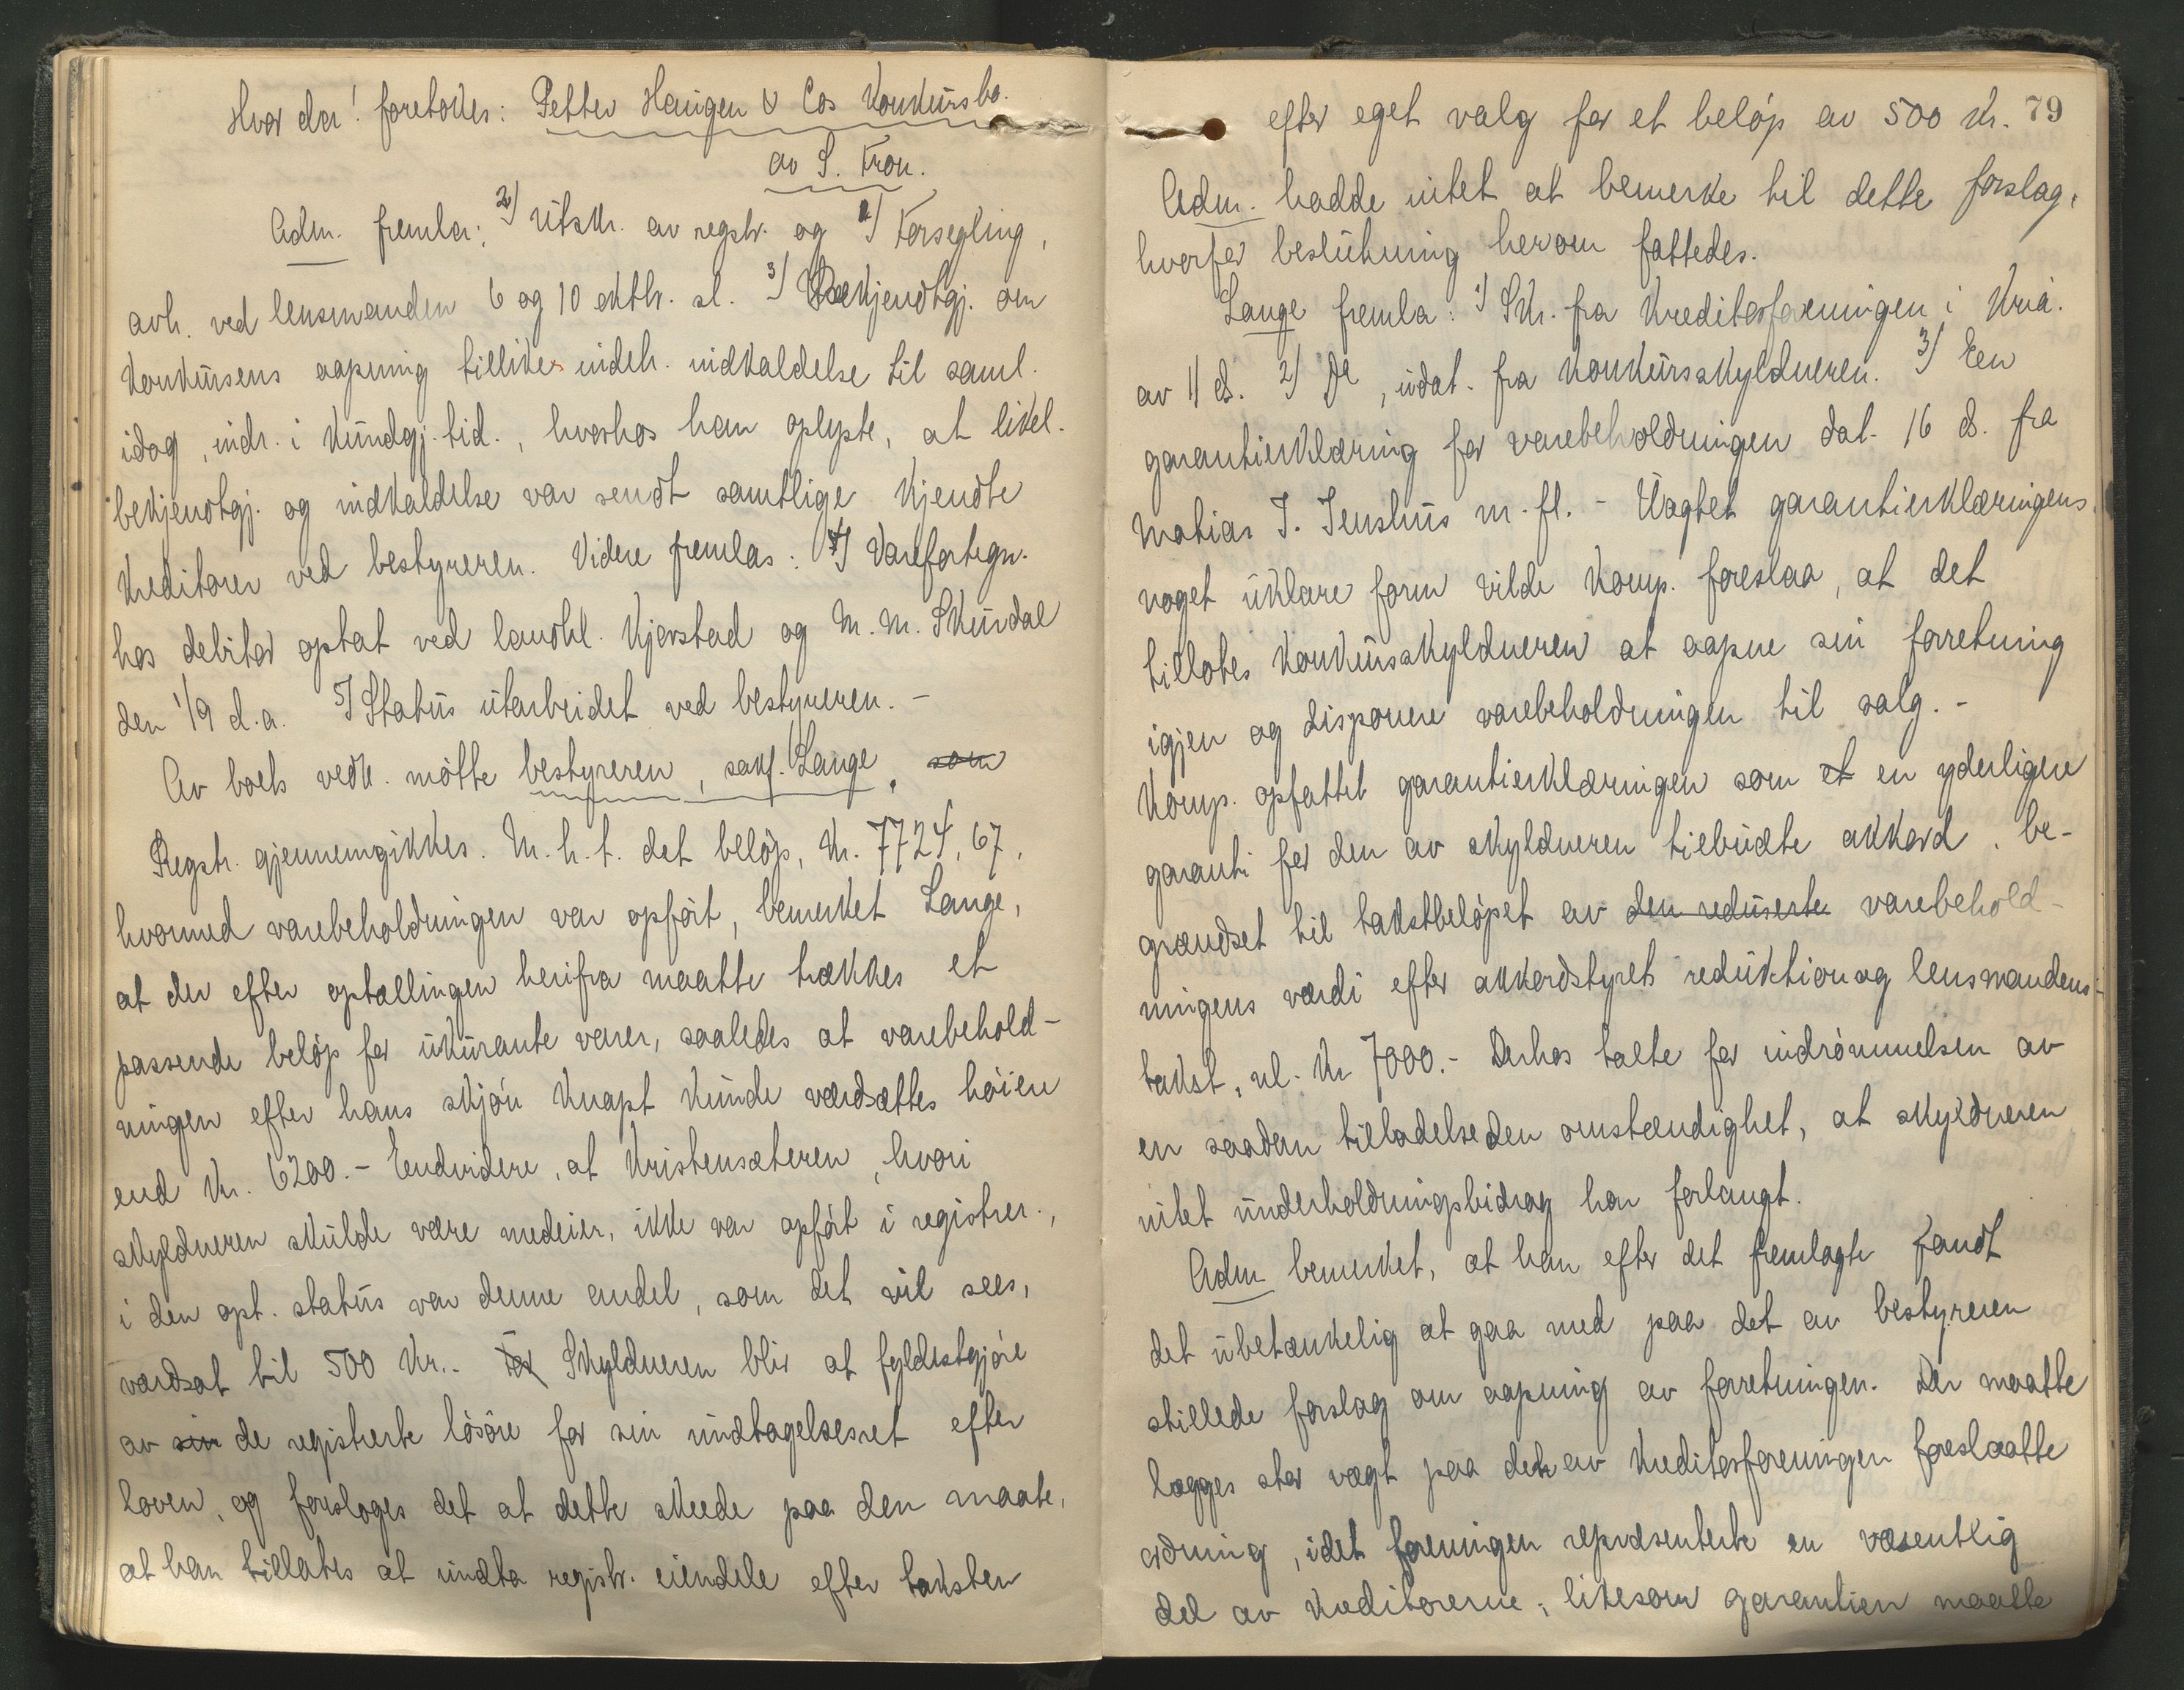 Hvor da! foretokes: Petter Haugen & Cos Konkursbo.
av S. Fron.
Adm. fremla: 2) Utskr. av regstr. og 1) Forsegling,
avh. ved lensmanden 6 og 10 oktbr. sl. 3) Bekjendtgj. om
konkursens aapning tillikes indeh. indkaldelse til saml.
idag, indr. i Kundgj. tid., hvorhos han oplyste, at likel.
bekjendtgj. og indkaldelse var sendt samtlige kjendte
kreditorer ved bestyreren. Videre fremlas: 4) Varefortegn.
hos debitor optat ved landhl. Kjørstad og M. M. Skurdal
den 1/9 d.a. 5) Status utarbeidet ved bestyreren. -
Av boets vedk. møtte bestyreren, sakf. Lange, som
Regstr. gjennemgikkes. M.h.t. det beløp, kr. 7724,67,
hvormed varebeholdningen var opført, bemerket Lange,
at der efter optællingen herifra maatte trækkes et
passende beløp for ukurante varer, saaledes at varebehold-
ningen efter hans skjøn knapt kunde værdsættes høiere
end kr. 6200.- Endvidere, at Kristensæteren, hvori
skyldneren skulde være medeier, ikke var opført i registrer.,
i den opt. status var denne andel, som det vil sees,
værdsat til 500 kr.. for Skyldneren blir at fyldestgjøre
av sin de registrerte løsøre for sin undtagelsesret efter
loven, og foresloges det at dette skeede paa den maate,
at han tillates at undta registr. eiendele efter taksten
79
efter eget valg for et beløp av 500 kr.
Adm. hadde intet at bemerke til dette forslag,
hvorfor beslutning herom fattedes.
Lange fremla: 1) Skr. fra Kreditorforeningen i Kria.
av 11 ds. 2) Do, udat. fra konkursskyldneren. 3) Een
garantierklæring for varebeholdningen dat. 16 ds. fra
Matias J. Jenshus m. fl. - Uagtet garantierklæringens
noget uklare form vilde komp. foreslaa, at det
tillotes konkursskyldneren at aapne sin forretning
igjen og disponere varebeholdningen til salg. -
Komp. opfattet garantierklæringen som et en yderligere
garanti for den av skyldneren tilbudte akkord, be-
grændset til takstbeløpet av den reduserte varebehold-
ningens værdi efter akkordstyrets reduktion og lensmandens-
takst, nl. kr 7000.- Derhos talte for indrømmelsen av
en saadan tilladelse den omstændighet, at skyldneren
intet underholdningsbidrag har forlangt.
Adm bemerket, at han efter det fremlagte fandt
det ubetænkelig at gaa med paa det av bestyreren
stillede forslag om aapning av forretningen. Der maatte
lægges stor vægt paa den av Kreditorforeningen foreslaatte
ordning, idet foreningen repræsenterte en væsentlig
del av kreditorerne, likesom garantien maatte